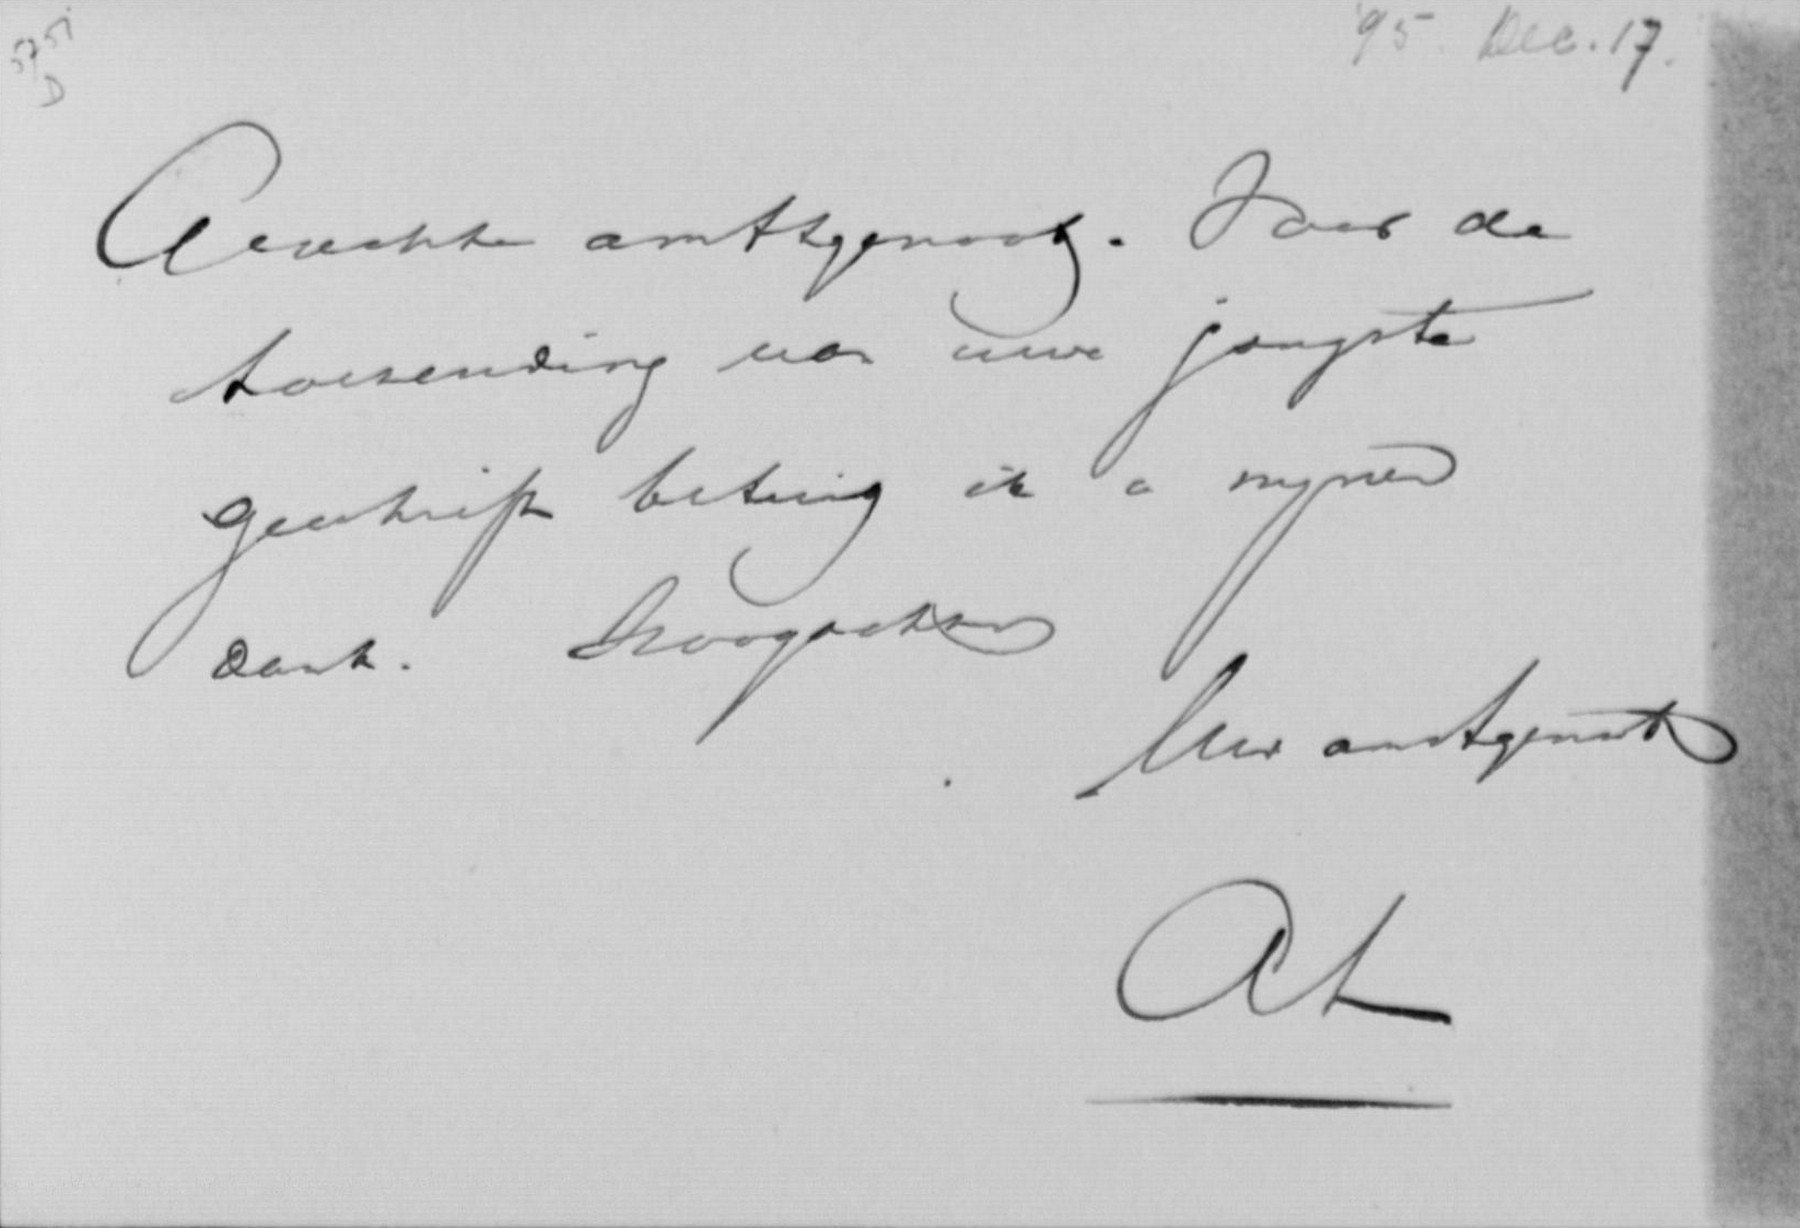 5751
D
'95. Dec. 17.
Geachte amtsgenoot. Voor de
toezending van uwe jongste
geschrift betuig ik u mijnen
dank. Hoogachtend
Uw amtsgenoot